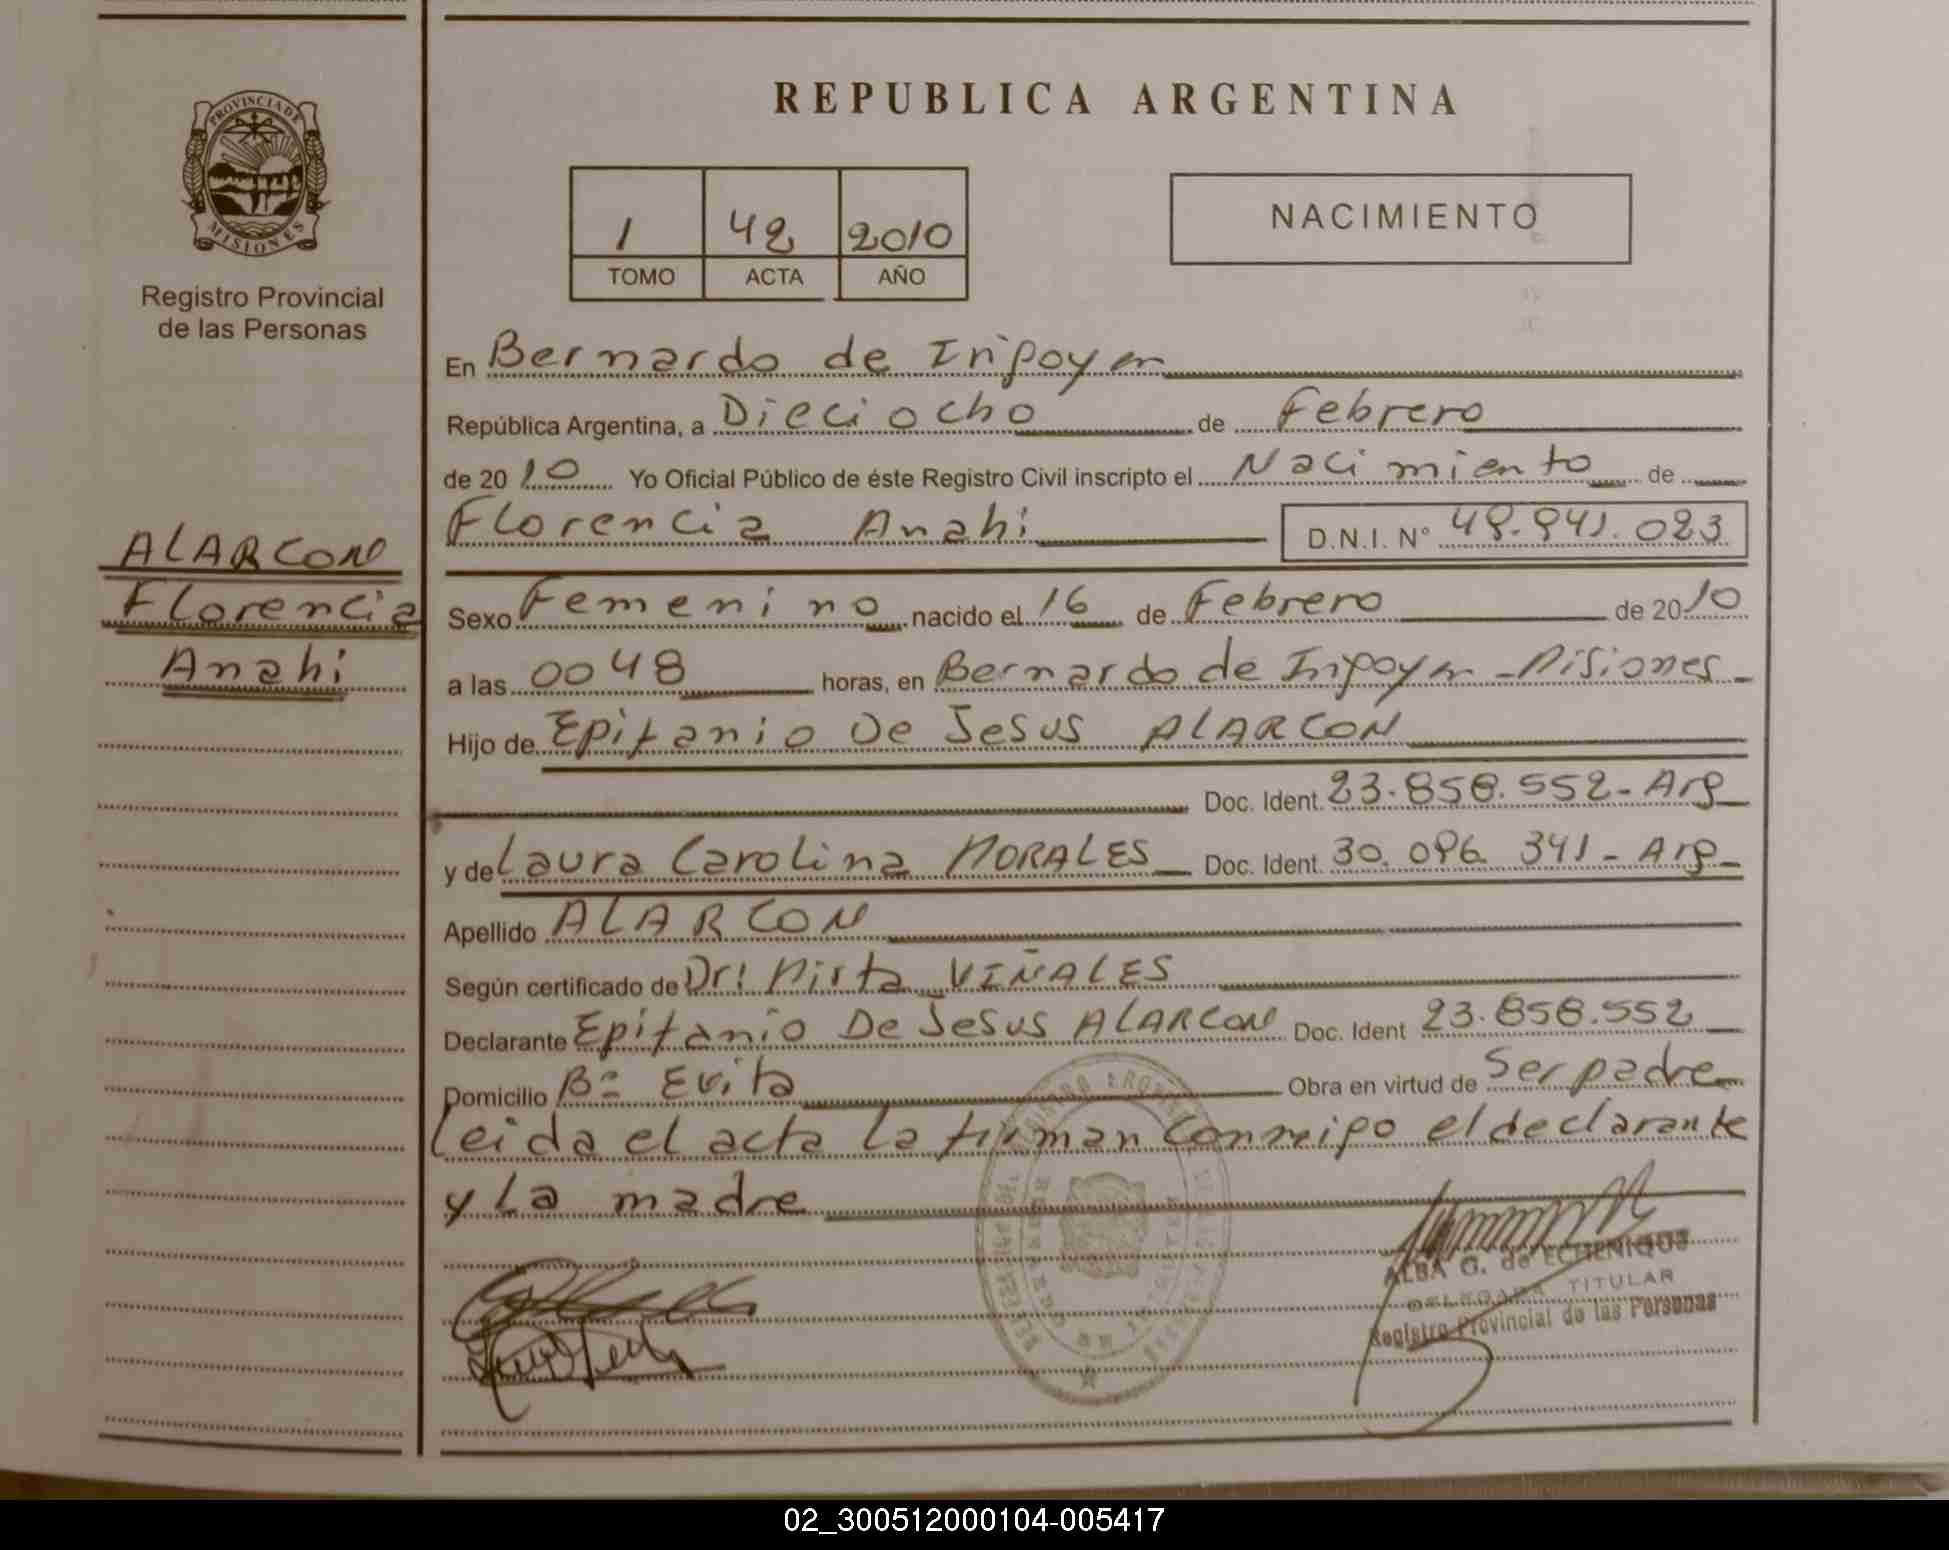 PROVINCIA DE
MISIONES
Registro Provincial
de las Personas
ALARCON
Florencia
Anahi
REPUBLICA ARGENTINA
1 42 2010
TOMO ACTA AÑO
NACIMIENTO
En Bernardo de Irigoyen
República Argentina, a Dieciocho de Febrero
de 2010 Yo Oficial Público de éste Registro Civil inscripto el Nacimiento de
Florencia Anahi D.N.I. Nº 49.941.023
Sexo Femenino nacido el 16 de Febrero de 2010
a las 0048 horas, en Bernardo de Irigoyen - Misiones
Hijo de Epifanio De Jesus ALARCON
Doc. Ident. 23.858.552 - Arg
y de Laura Carolina MORALES Doc. Ident. 30.096.341 - Arg
Apellido ALARCON
Según certificado de Dr: Mirta VIÑALES
Declarante Epifanio De Jesus ALARCON Doc. Ident 23.858.552
Domicilio Bº Evita Obra en virtud de Ser padre
Leida el acta la firman conmigo el declarante
y La madre
ALBA G. de ECHENIQUE
DELEGADA TITULAR
Registro Provincial de las Personas
02_300512000104-005417